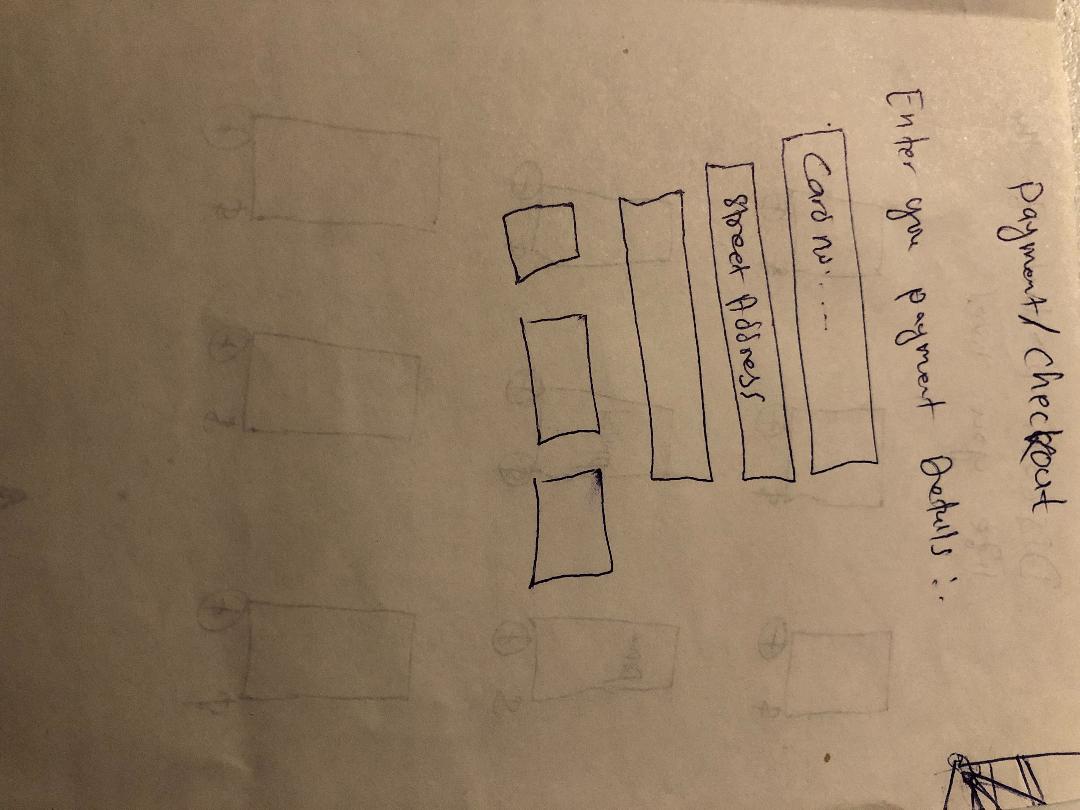 Payment/Checkout
Enter you payment Details :
Card no: ...
Street Address